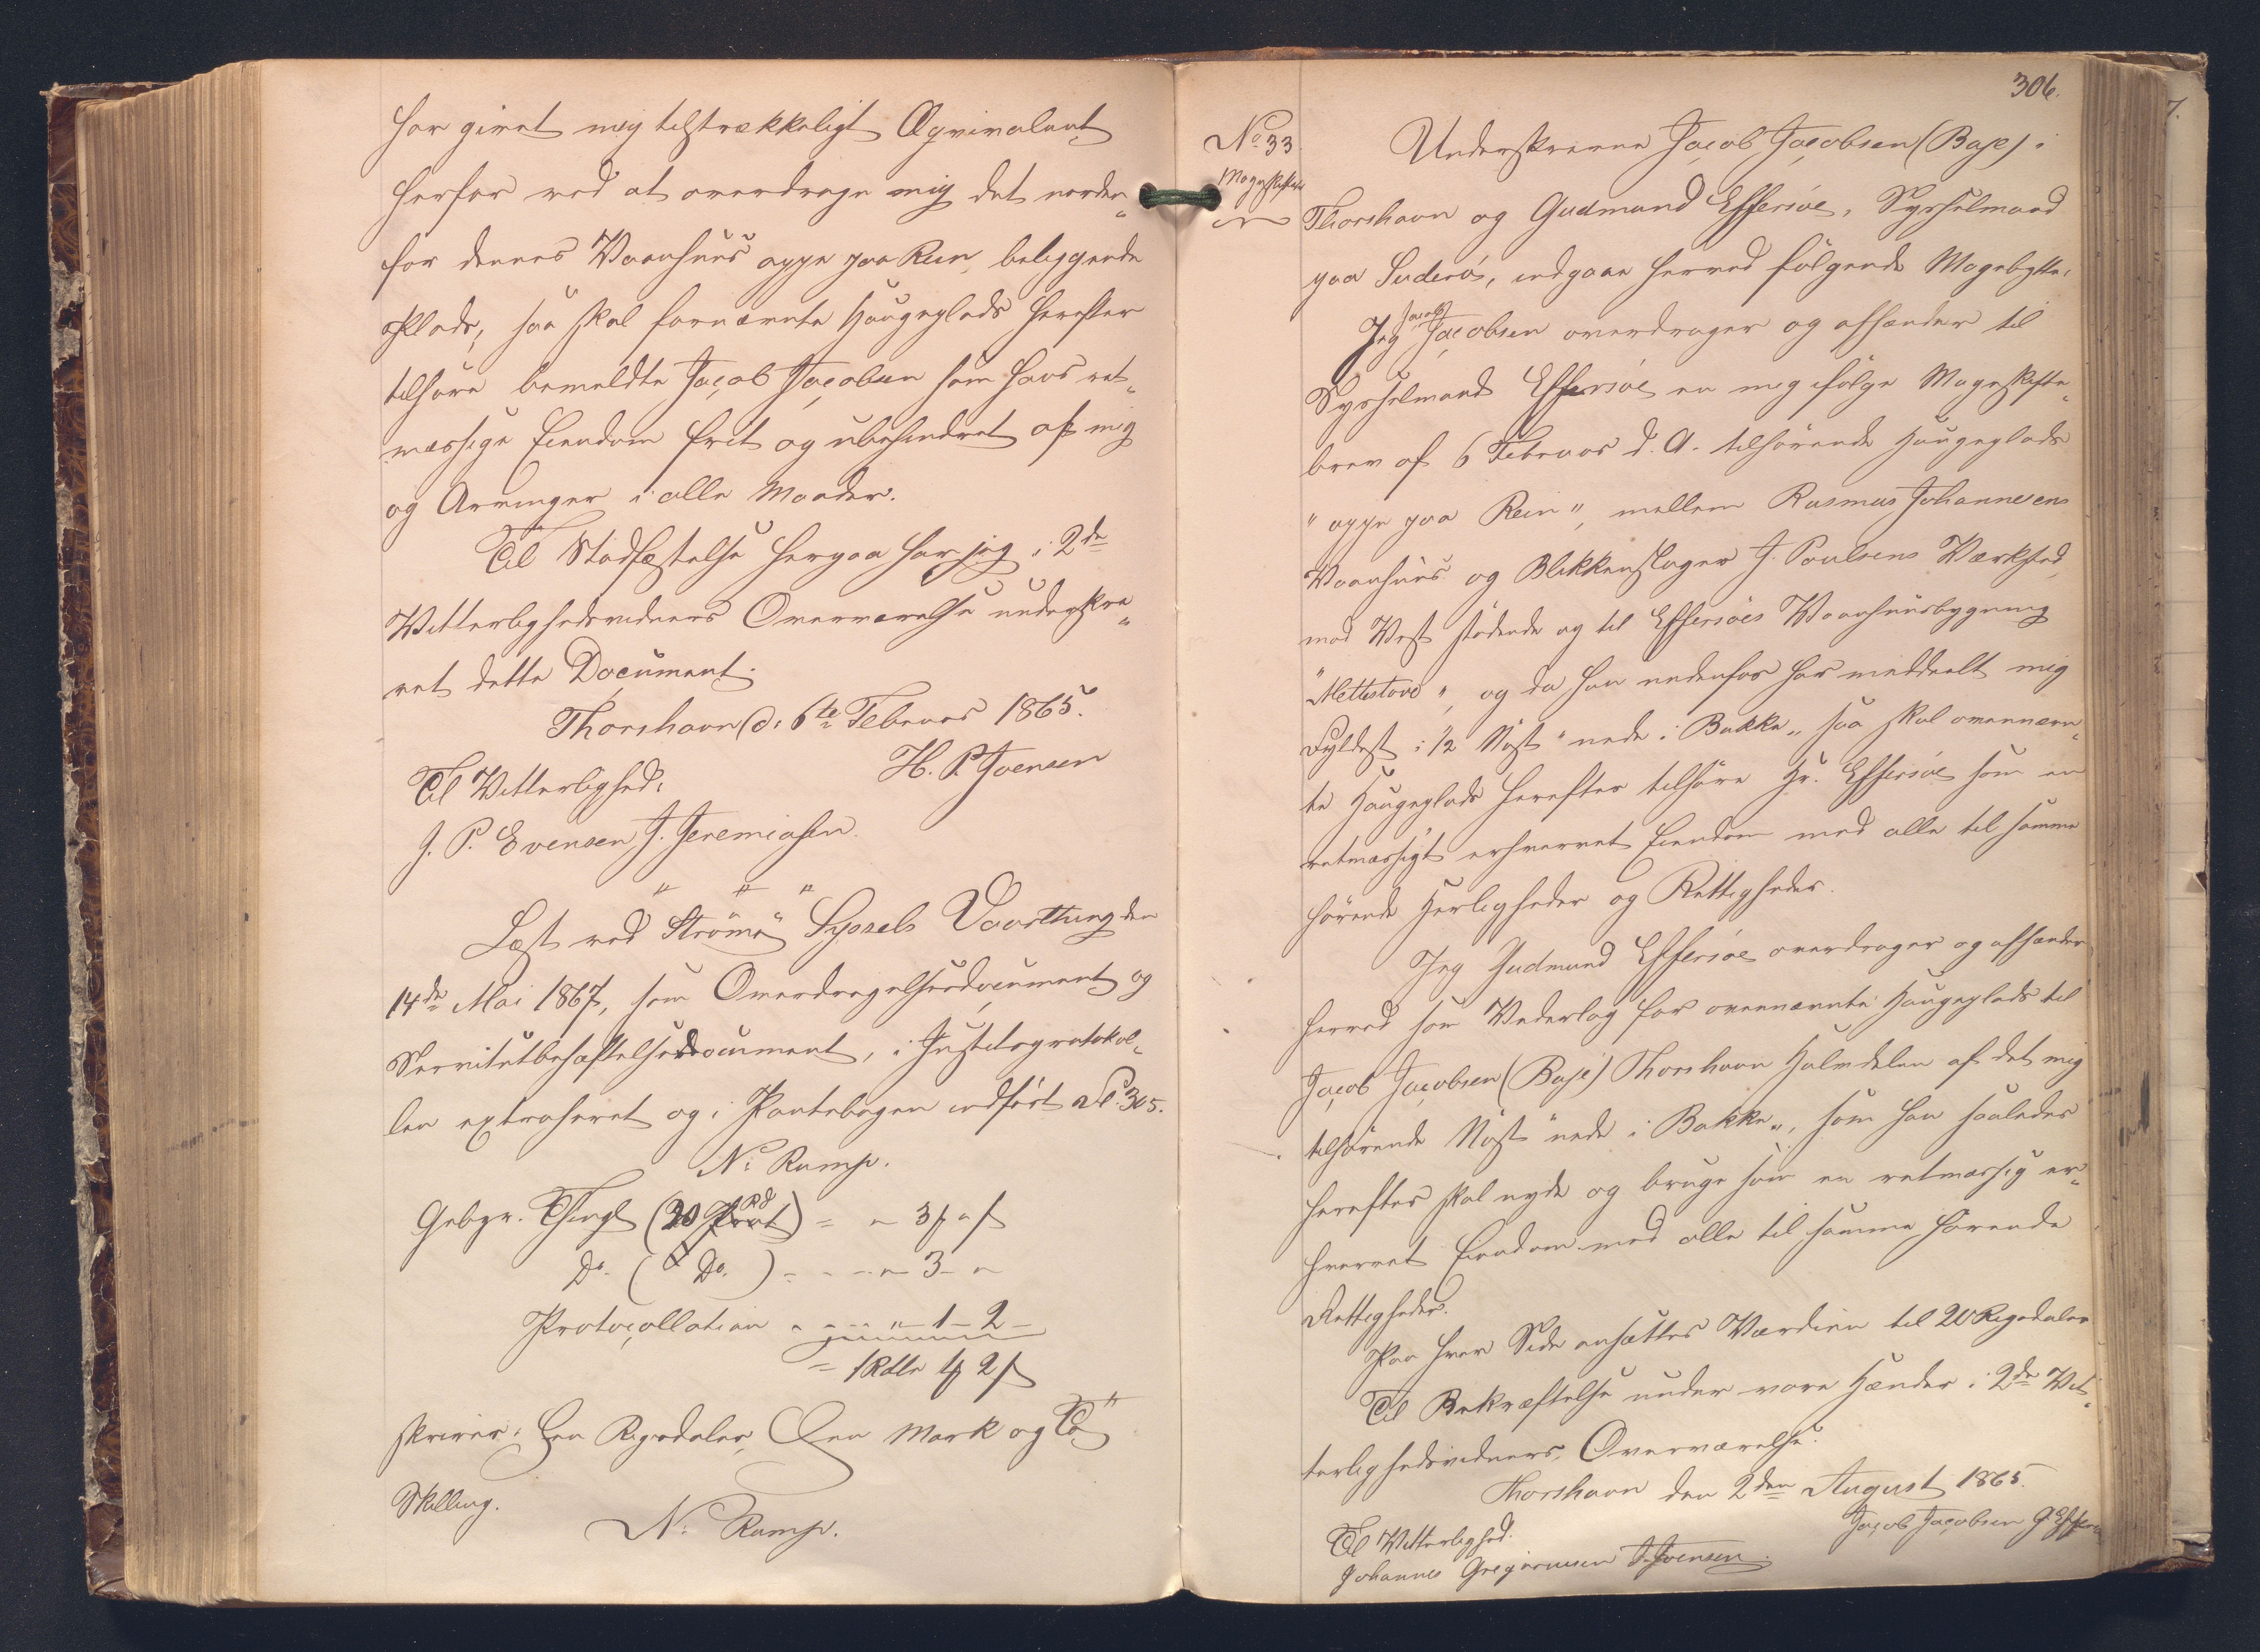 har givet mig tilstrækkeligt Æqvivalent
herfor ved at overdrage mig det norden-
for dennes Vaanhuus oppe paa Rein beliggende
Plads, saa skal fornævnte Haugeplads herefter
tilhøre bemeldte Jacob Jacobsen som hans ret-
mæssige Eiendom frit og ubehindret af mig
og Arvinger i alle Maader.
Til Stadfæstelse herpaa har jeg i 2de
Vitterlighedsvidners Overværelse underskre-
vet dette Document.
Thorshavn d: 6te Februar 1865.
H. P. Joensen
Til Vitterlighed:
J. P. Evensen J. Jeremiasen.
" # "
Læst ved Strömö Syssels Vaarthing den
14de Mai 1867, som Overdragelsesdocument og
Servitutbehæftelsesdocument, i Justitsprotokol-
len extraheret og i Pantebogen indført Fol. 305.
N. Rump.
Gebyr. Thingl (20 Rd) = " 3 ß " ß
Do. ( Do. ) - - - " 3 - "
Protocollation - - - " - 1 - 2 -
= 1 Rdlr 1 ß 2 ß
skriver: Een Rigsdaler, Een Mark og To
Skilling.
N. Rump.
306.
No. 33.
Mageskifte
Underskrevne Jacob Jacobsen (Baje) i
Thorshavn og Gudmund Effersöe, Sysselmand
paa Suderö, indgaae herved følgende Magebytte:
Jeg Jacob Jacobsen overdrager og afhænder til
Sysselmand Effersöe en mig ifølge Mageskifte-
brev af 6 Februar d. A. tilhørende Haugeplads
"oppe paa Rein", mellem Rasmus Johannesens
Vaanhuus og Blikkenslager J. Poulsens Værksted
mod Vest stödende og til Effersöes Vaanhuusbygning
"Mettustova", og da han nedenfor har meddeelt mig
Fyldest i 1/2 Nöst "nede i Bakke", saa skal ovennævn-
te Haugeplads herefter tilhøre Hr. Effersöe som en
retmæssigt erhvervet Eiendom med alle til samme
hørende Herligheder og Rettigheder.
Jeg Gudmund Effersöe overdrager og afhænder
herved som Vederlag for ovennævnte Haugeplads til
Jacob Jacobsen (Baje) Thorshavn Halvdelen af det mig
tilhørende Nöst "nede i Bakke", som han saaledes
herefter skal nyde og bruge som en retmæssig er-
hvervet Eiendom med alle til samme hørende
Rettigheder.
Paa hver Side ansættes Værdien til 20 Rigsdaler
Til Bekræftelse under vore Hænder i 2de Vit-
terlighedsvidners Overværelse.
Thorshavn den 2den August 1865.
Jacob Jacobsen G. Effersöe
Til Vitterlighed.
Johannes Gregoriussen J. Joensen.